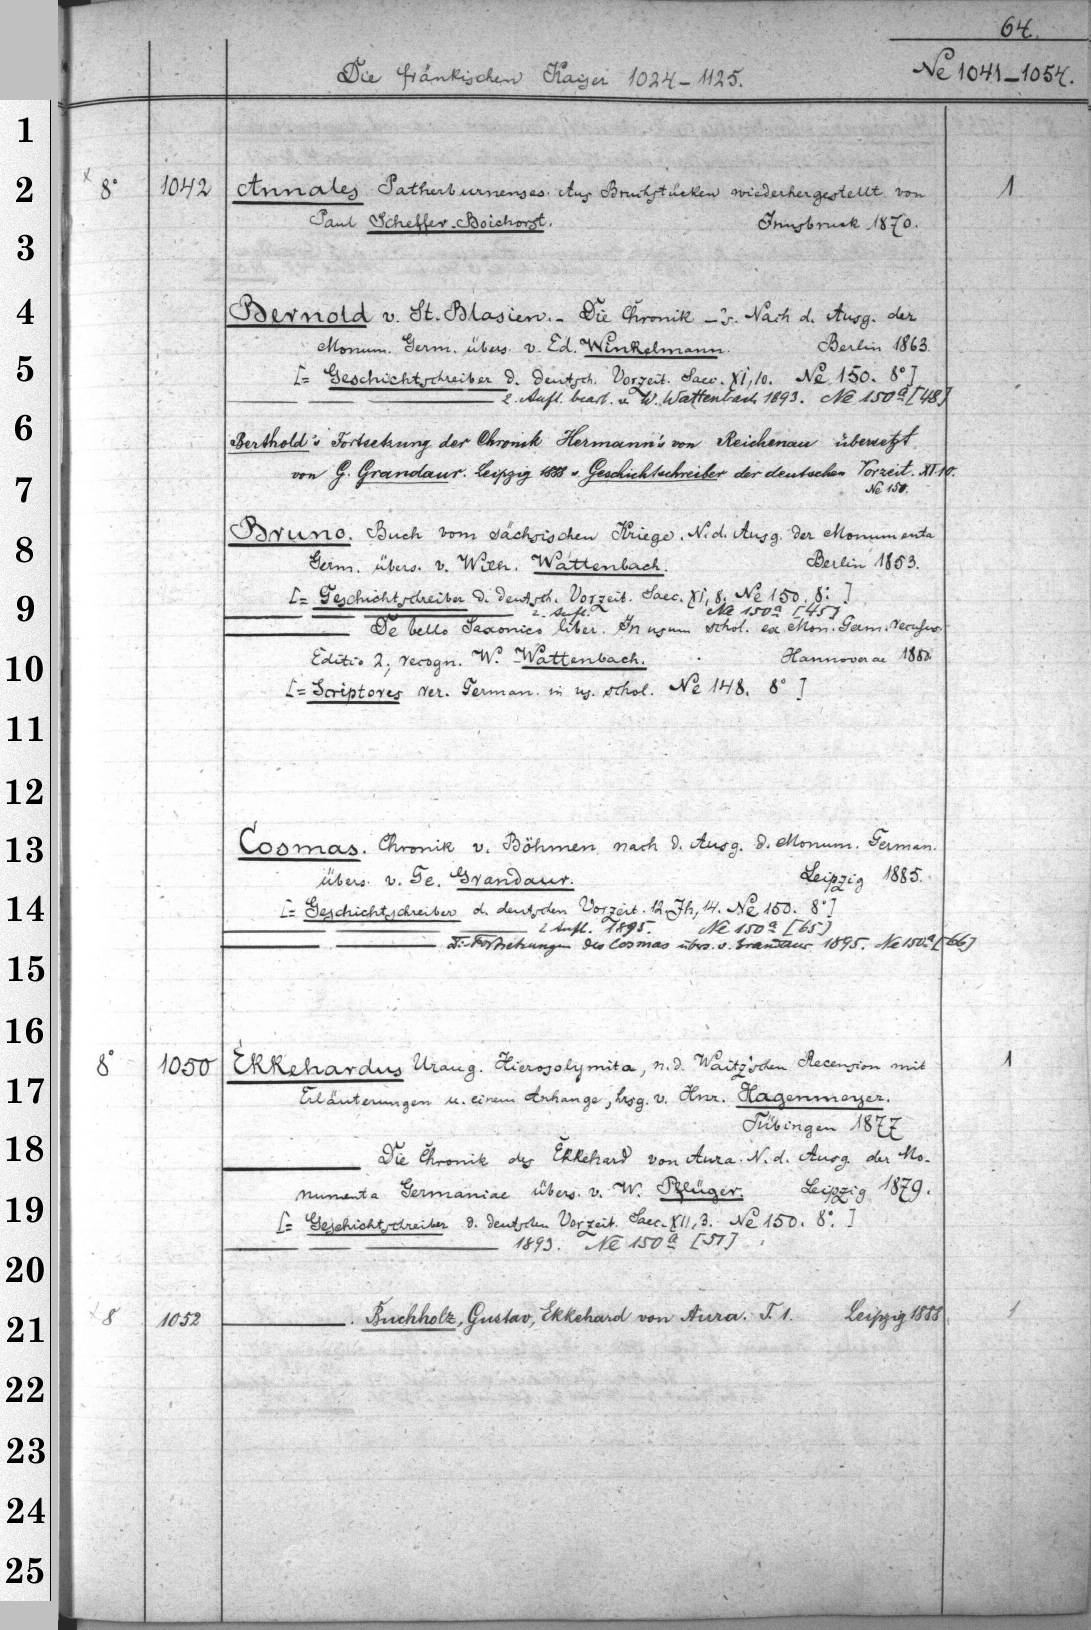 64.
Die fränkischen Kaiser 1024–1125.
Ne 1041–1054.
1
2
3
4
5
6
7
8
9
10
11
12
13
14
15
16
17
18
19
20
21
22
23
24
25
x 8° 1042 Annales Patherbrunenses. Aus Bruchstücken wiederhergestellt von 1
Paul Scheffer-Boichorst. Innsbruck 1870.
Bernold v. St. Blasien. – Die Chronik –'s. Nach d. Ausg. der
Monum. Germ. übers. v. Ed. Winkelmann. Berlin 1863.
[= Geschichtschreiber d. deutsch. Vorzeit. Saec. XI, 10. Ne 150. 8°]
2. Aufl. bearb. v. W. Wattenbach 1893. Ne 150a [48]
Berthold's Fortsetzung der Chronik Hermann's von Reichenau übersetzt
von G. Grandaur. Leipzig 1888 = Geschichtschreiber der deutschen Vorzeit. XI. 10.
Ne 150.
Bruno. Buch vom sächsischen Kriege. N. d. Ausg. der Monumenta
Germ. übers. v. Wilh. Wattenbach. Berlin 1853.
[= Geschichtschreiber d. deutsch. Vorzeit. Saec. XI, 8. Ne 150. 8°. ]
2. Aufl. Ne 150a [45]
De bello Saxonico liber. In usum schol. ex Mon. Germ. recusus.
Editio 2, recogn. W. Wattenbach. Hannoverae 1880.
[= Scriptores rer. German. in us. schol. Ne 148. 8° ]
Cosmas. Chronik v. Böhmen nach d. Ausg. d. Monum. German.
übers. v. Ge. Grandaur. Leipzig 1885.
[= Geschichtschreiber d. deutschen Vorzeit. 12. Jh, 14. Ne 150. 8°]
2. Aufl. 1895. Ne 150a [65]
D. Fortsetzungen des Cosmas übers. v. Grandaur 1895. Ne 150a [66]
8° 1050 Ekkehardus Uraug. Hierosolymita, n. d. Waitz'schen Recension mit 1
Erläuterungen u. einem Anhange, hrsg. v. Hnr. Hagenmeyer.
Tübingen 1877
Die Chronik des Ekkehard von Aura. N. d. Ausg. der Mo-
numenta Germaniae übers. v. W. Pflüger. Leipzig 1879.
[= Geschichtschreiber d. deutschen Vorzeit. Saec. XII, 3. Ne 150. 8°. ]
1893. Ne 150a [51]
x 8 1052 . Buchholz, Gustav, Ekkehard von Aura. T. 1. Leipzig 1888 1